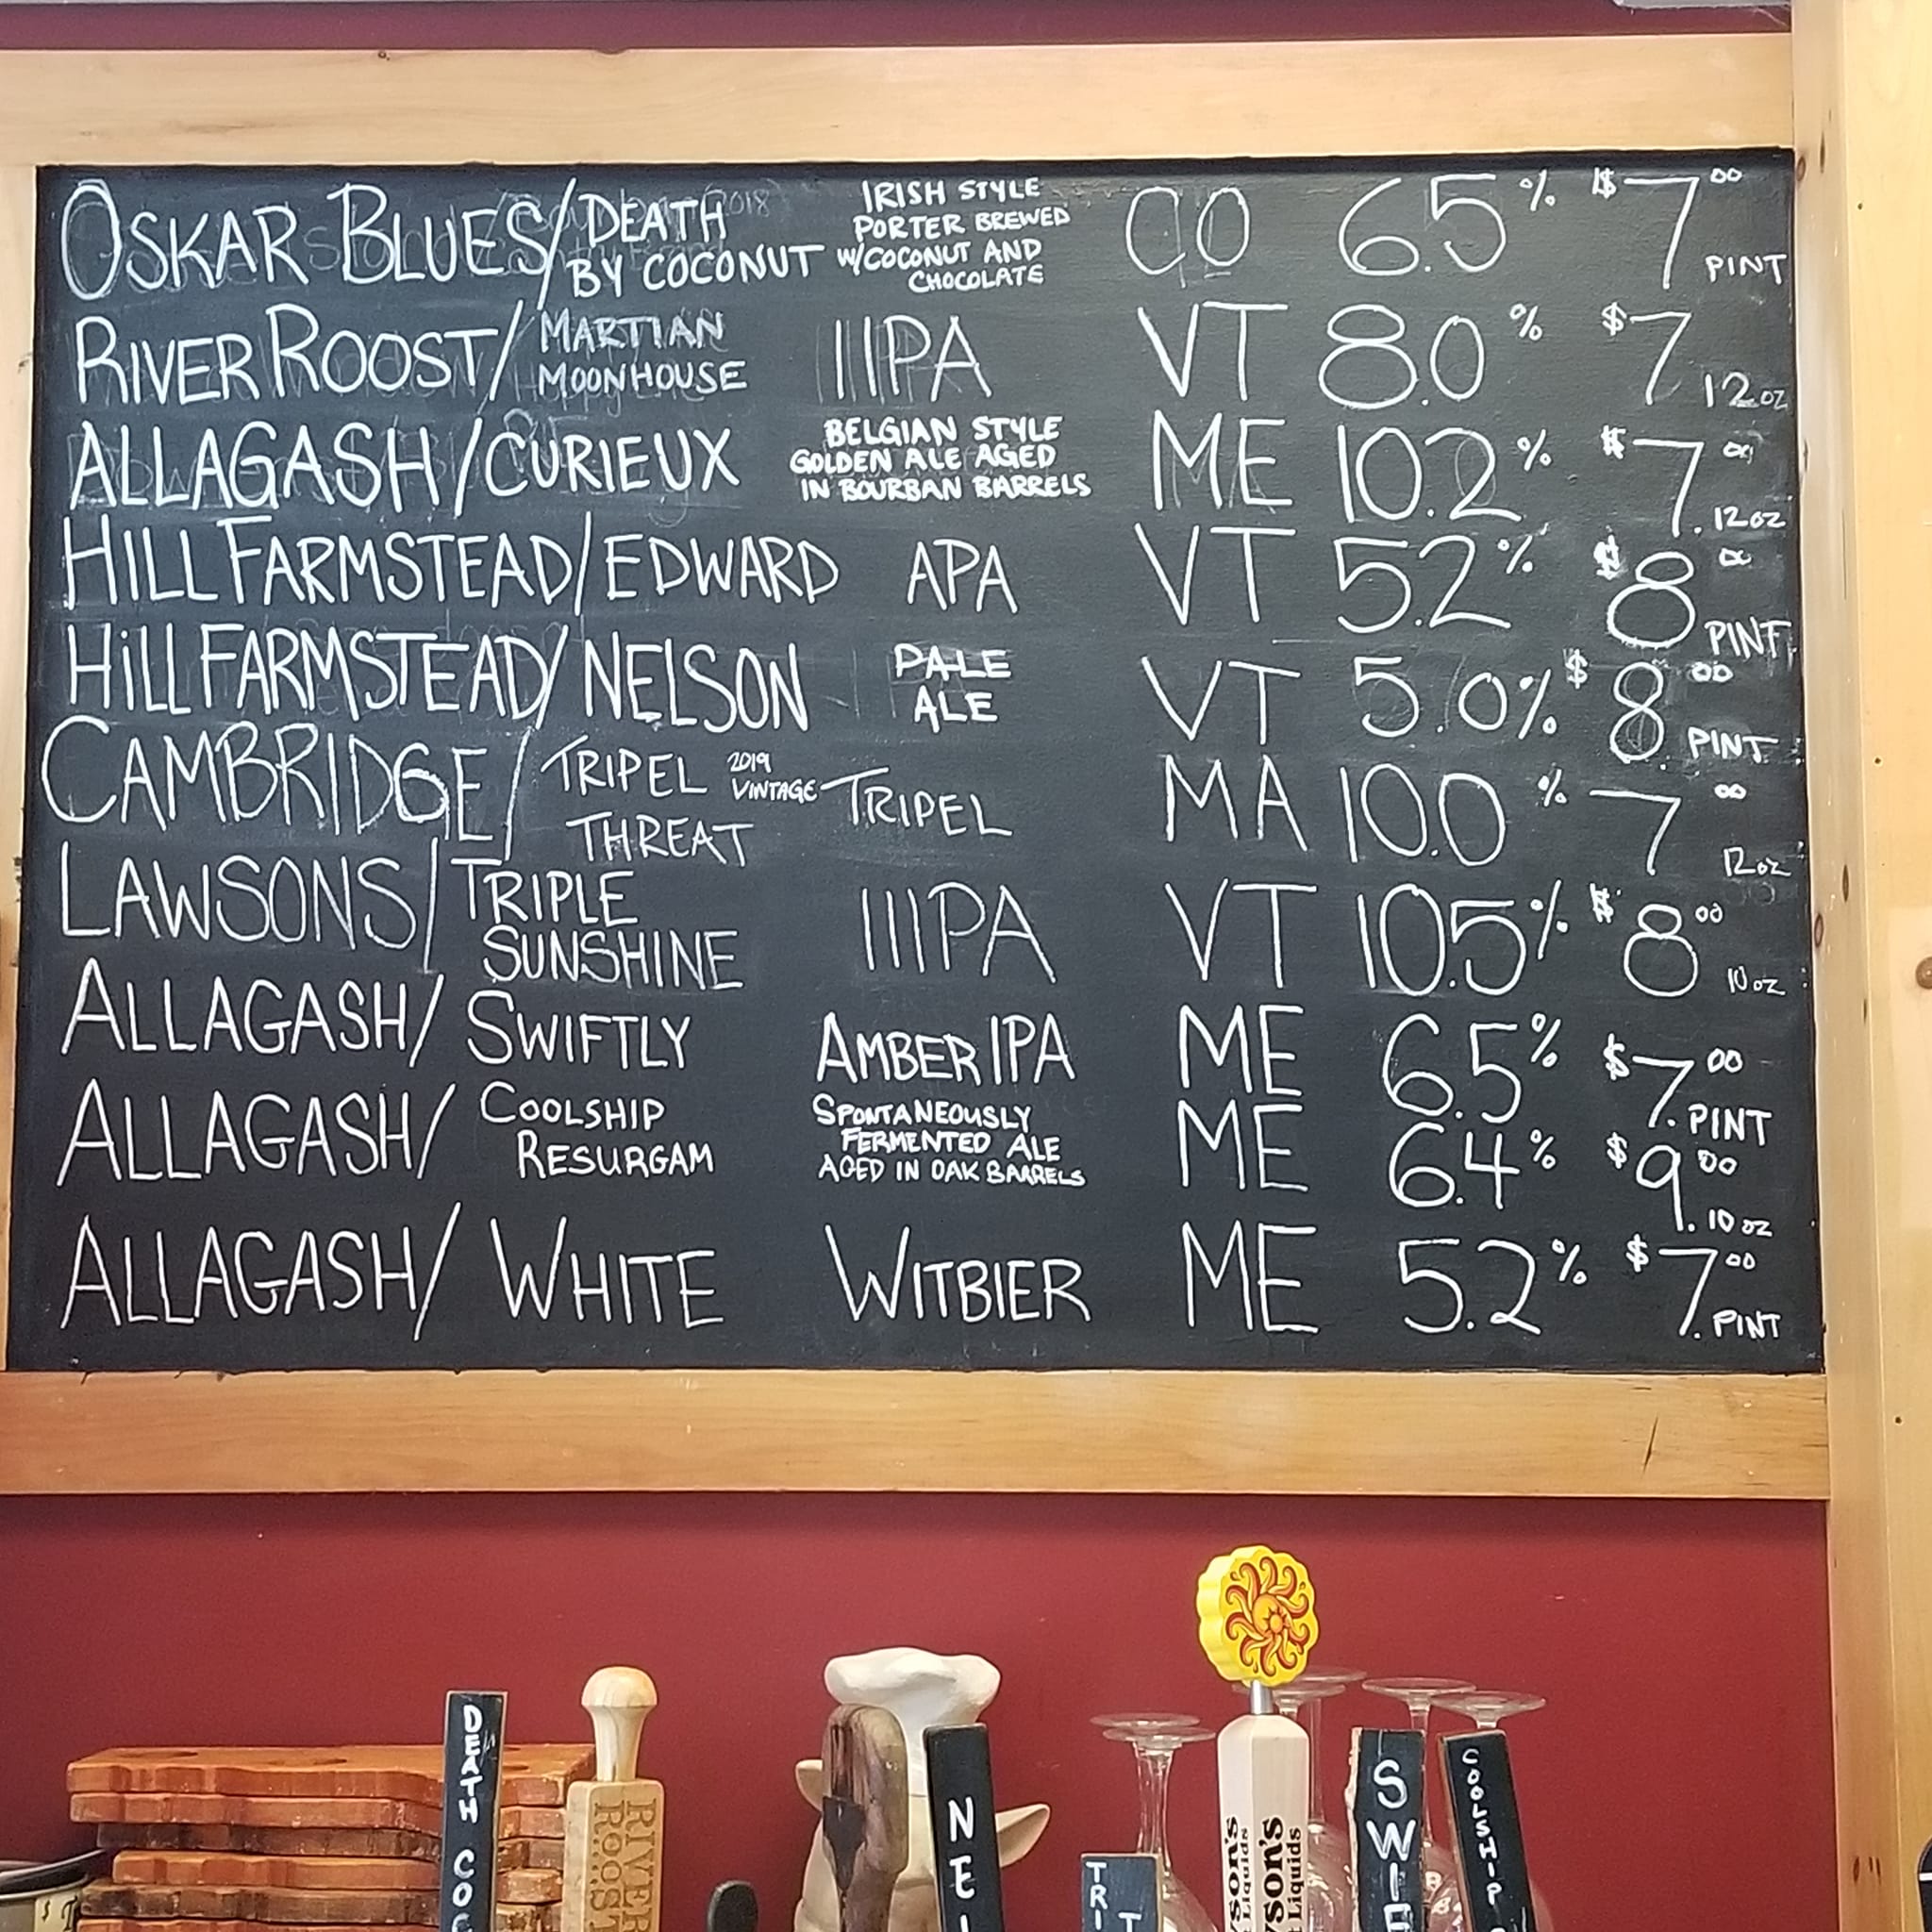 OSKAR BLUES/DEATH BY COCONUT IRISH STYLE PORTER BREWED W/COCONUT AND CHOCOLATE CO 6.5% $7.00 PINT
RIVER ROOST/MARTIAN MOONHOUSE IIPA VT 8.0% $7 12oz
ALLAGASH/CURIEUX BELGIAN STYLE GOLDEN ALE AGED IN BOURBAN BARRELS ME 10.2% $7.00 12oz
HILL FARMSTEAD/EDWARD APA VT 5.2% $8 00 PINT
HiLL FARMSTEAD/NELSON PALE ALE VT 5.0% $8.00 PINT
CAMBRIDGE/TRIPEL THREAT 2019 VINTAGE TRIPEL MA 10.0% 7 00 12oz
LAWSONS/TRIPLE SUNSHINE IIIPA VT 10.5% $8 00 10oz
ALLAGASH/SWIFTLY AMBER IPA ME 6.5% $7.00 PINT
ALLAGASH/COOLSHIP RESURGAM SPONTANEOUSLY FERMENTED ALE AGED IN OAK BARRELS ME 6.4% $9.00 10oz
ALLAGASH/WHITE WITBIER ME 5.2% $7.00 PINT
DEATH COC
RIVER ROOST
NEL
TRI
SWIF
COOLSHIP